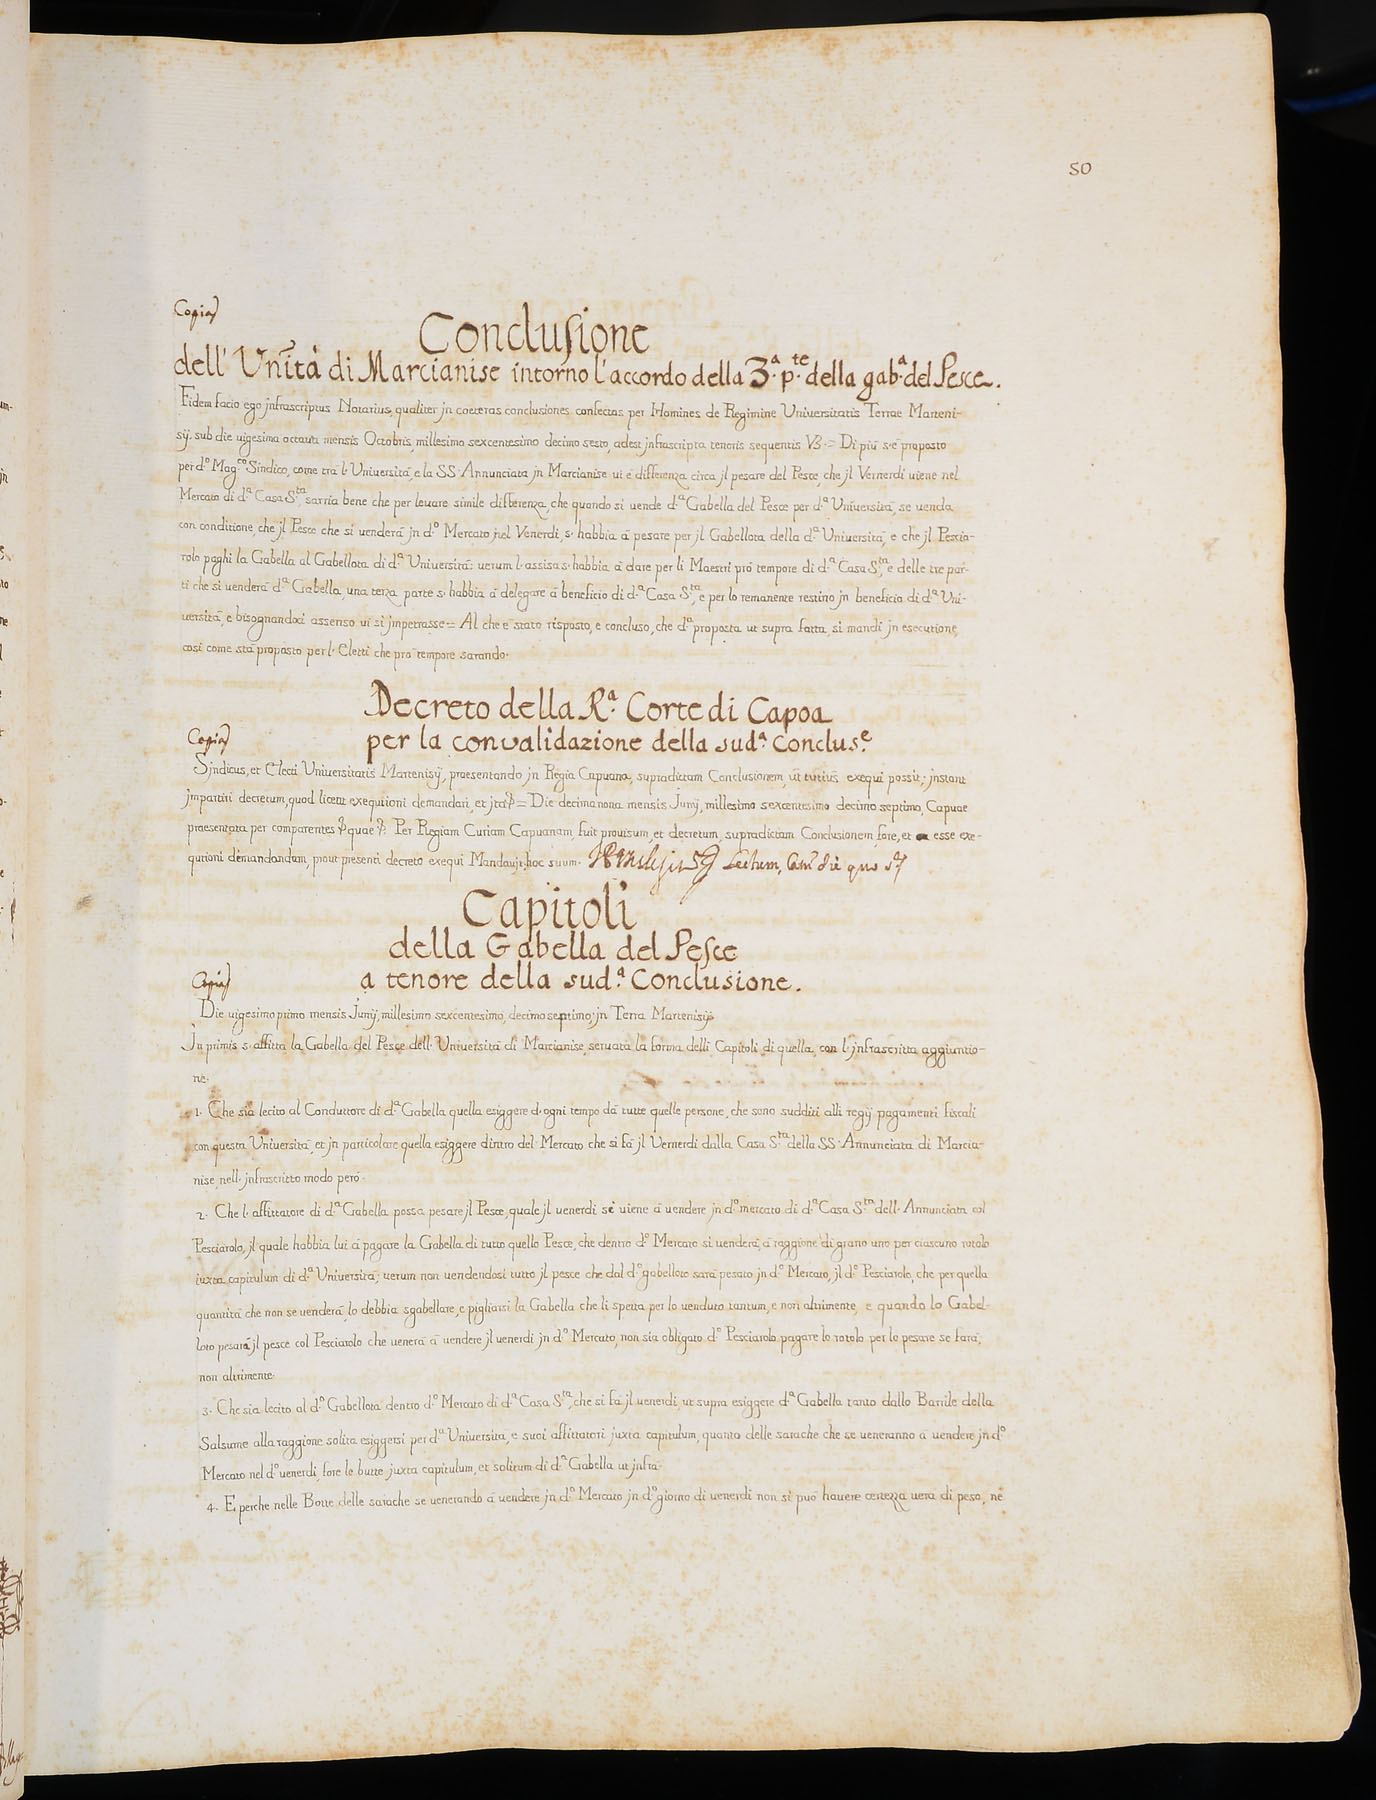 50
Copia
Conclusione
dell' Un.ità di Marcianise intorno l'accordo della 3.ª p.te della gab.ª del Pesce.
Fidem facio ego jnfrascriptus Notarius, qualiter jn coeteras conclusiones confectas per Homines de Regimine Universitatis Terrae Marteni-
sÿ, sub die uigesima octaua mensis Octobris millesimo sexcentesimo decimo sesto, adest jnfrascripta tenoris sequentis V3.= Di più s'è proposto
per d.º Mag.co Sindico, come trà l'Università, e la SS. Annunciata jn Marcianise ui è differenza circa jl pesare del Pesce, che jl Vernerdi uiene nel
Mercato di d.ª Casa S.ta, sarria bene che per leuare simile differenza, che quando si uende d.ª Gabella del Pesce per d.ª Università, se uenda
con conditione, che jl Pesce che si uenderà jn d.º Mercato nel Venerdi, s'habbia à pesare per jl Gabellota della d.ª Università, e che jl Pescia-
rolo paghi la Gabella al Gabellota di d.ª Università: uerum l'assisa s'habbia à dare per li Maestri prò tempore di d.ª Casa S.ta, e delle tre par-
ti che si uenderà d.ª Gabella, una terza parte s'habbia à delegare à beneficio di d.ª Casa S.ta, e per lo remanente restino jn beneficio di d.ª Uni-
uersità, e bisognandoci assenso ui si jmpetrasse = Al che è stato risposto, e concluso, che d.ª proposta ut supra fatta, si mandi jn esecutione,
così come stà proposto per l'Eletti che pro tempore sarando.
Decreto della R.ª Corte di Capoa
Copia
per la convalidazione della sud.ª Conclus.e
Sjndicus, et Electi Universitatis Martenisÿ, praesentando jn Regia Capuana, supradictam Conclusionem, ut tutius exequi possit; jnstant
jmpartiri decretum, quod licent exequtioni demandari, et jta = Die decima nona mensis Junÿ, millesimo sexcentesimo decimo septimo, Capuae
praesentata per comparentes quae. Per Regiam Curiam Capuanam, fuit prouisum, et decretum, supradictam Conclusionem fore, et esse exe-
qutioni demandandam, prout presenti decreto exequi Mandauit, hoc suum. Lectum, die quo
Capitoli
della Gabella del Pesce
Copia
a tenore della sud.ª Conclusione.
Die uigesimo primo mensis Junÿ, millesimo sexcentesimo, decimo septimo; jn Terra Martenisÿ
Jn primis s'affitta la Gabella del Pesce dell'Università di Marcianise, seruata la forma delli Capitoli di quella, con l'jnfrascritta aggiuntio-
ne.
1. Che sia lecito al Conduttore di d.ª Gabella quella esiggere d'ogni tempo dà tutte quelle persone, che sono sudditi alli regÿ pagamenti fiscali
con questa Università, et jn particolare quella esiggere dintro del Mercato che si fà jl Vernerdi dalla Casa S.ta della SS. Annunciata di Marcia-
nise, nell'jnfrascritto modo però.
2. Che l'affittatore di d.ª Gabella possa pesare jl Pesce, quale jl uenerdi si uiene à uendere jn d.º mercato di d.ª Casa S.ta dell'Annunciata col
Pesciarolo, jl quale habbia lui à pagare la Gabella di tutto quello Pesce, che dentro d.º Mercato si uenderà, à raggione di grano uno per ciascuno rotolo
iuxta capitulum di d.ª Università; uerum non uendendosi tutto jl pesce che dal d.º gabelloto sarà pesato jn d.º Mercato, jl d.º Pesciarolo, che per quella
quantità che non se uenderà, lo debbia sgabellare, e pigliarsi la Gabella che li spetta per lo uenduto tantum, e non altrimente, e quando lo Gabel-
loto pesarà jl pesce col Pesciarolo che uenerà à uendere jl uenerdi jn d.º Mercato, non sia obligato d.º Pesciarolo pagare lo rotolo per lo pesare se farà,
non altrimente.
3. Che sia lecito al d.º Gabellota dentro d.º Mercato di d.ª Casa S.ta, che si fà jl uenerdi, ut supra esiggere d.ª Gabella tanto dallo Barrile della
Salsume alla raggione solita esiggersi per d.ª Università, e suoi affittatori juxta capitulum, quanto delle sarache che se ueneranno à uendere jn d.º
Mercato nel d.º uenerdi, fore le butte juxta capitulum, et solitum di d.ª Gabella ut jnfra.
4. E perche nelle Botte delle sarache se uenerando à uendere jn d.º Mercato jn d.º giorno di uenerdi non si può hauere certezza uera di peso, nè